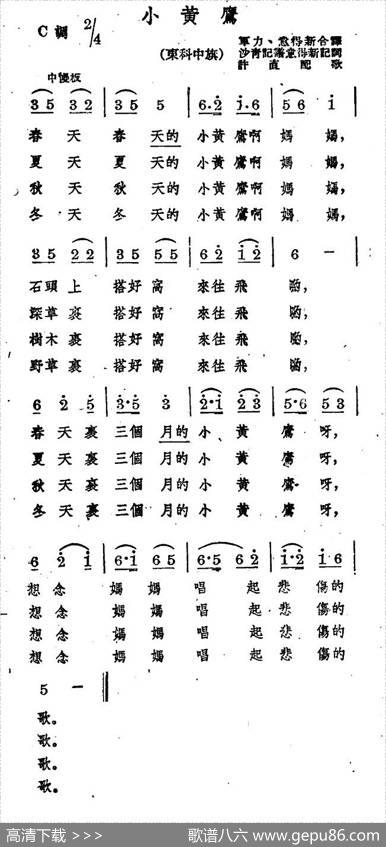 小黃鷹
C调 2/4
(東科中族)
軍力、意得新合譯
沙青記譜意得新記詞
許直配歌
中慢板
3 5 3 2 | 3 5 5 | 6·2 1·6 | 5 6 1 |
春天 春 天的 小黃鷹啊 媽 媽,
夏天 夏 天的 小黃鷹啊 媽 媽,
秋天 秋 天的 小黃鷹啊 媽 媽,
冬天 冬 天的 小黃鷹啊 媽 媽,
3 5 2 2 | 3 5 5 5 | 6 2 1 2 | 6 － |
石頭上 搭好窩 來往飛 翔,
深草裹 搭好窩 來往飛 翔,
樹木裹 搭好窩 來往飛 翔,
野草裹 搭好窩 來往飛 翔,
6 2 5 | 3·5 3 | 2·1 2 3 | 5·6 5 3 |
春天裹 三個 月的 小 黃 鷹 呀,
夏天裹 三個 月的 小 黃 鷹 呀,
秋天裹 三個 月的 小 黃 鷹 呀,
冬天裹 三個 月的 小 黃 鷹 呀,
6 2 1 | 6·1 6 5 | 6·5 6 2 | 1·2 1 6 |
想念 媽 媽 唱 起悲 傷的
想念 媽 媽 唱 起悲 傷的
想念 媽 媽 唱 起悲 傷的
想念 媽 媽 唱 起悲 傷的
5 － ‖
歌。
歌。
歌。
歌。
高清下载 >>>
歌谱八六 www.gepu86.com